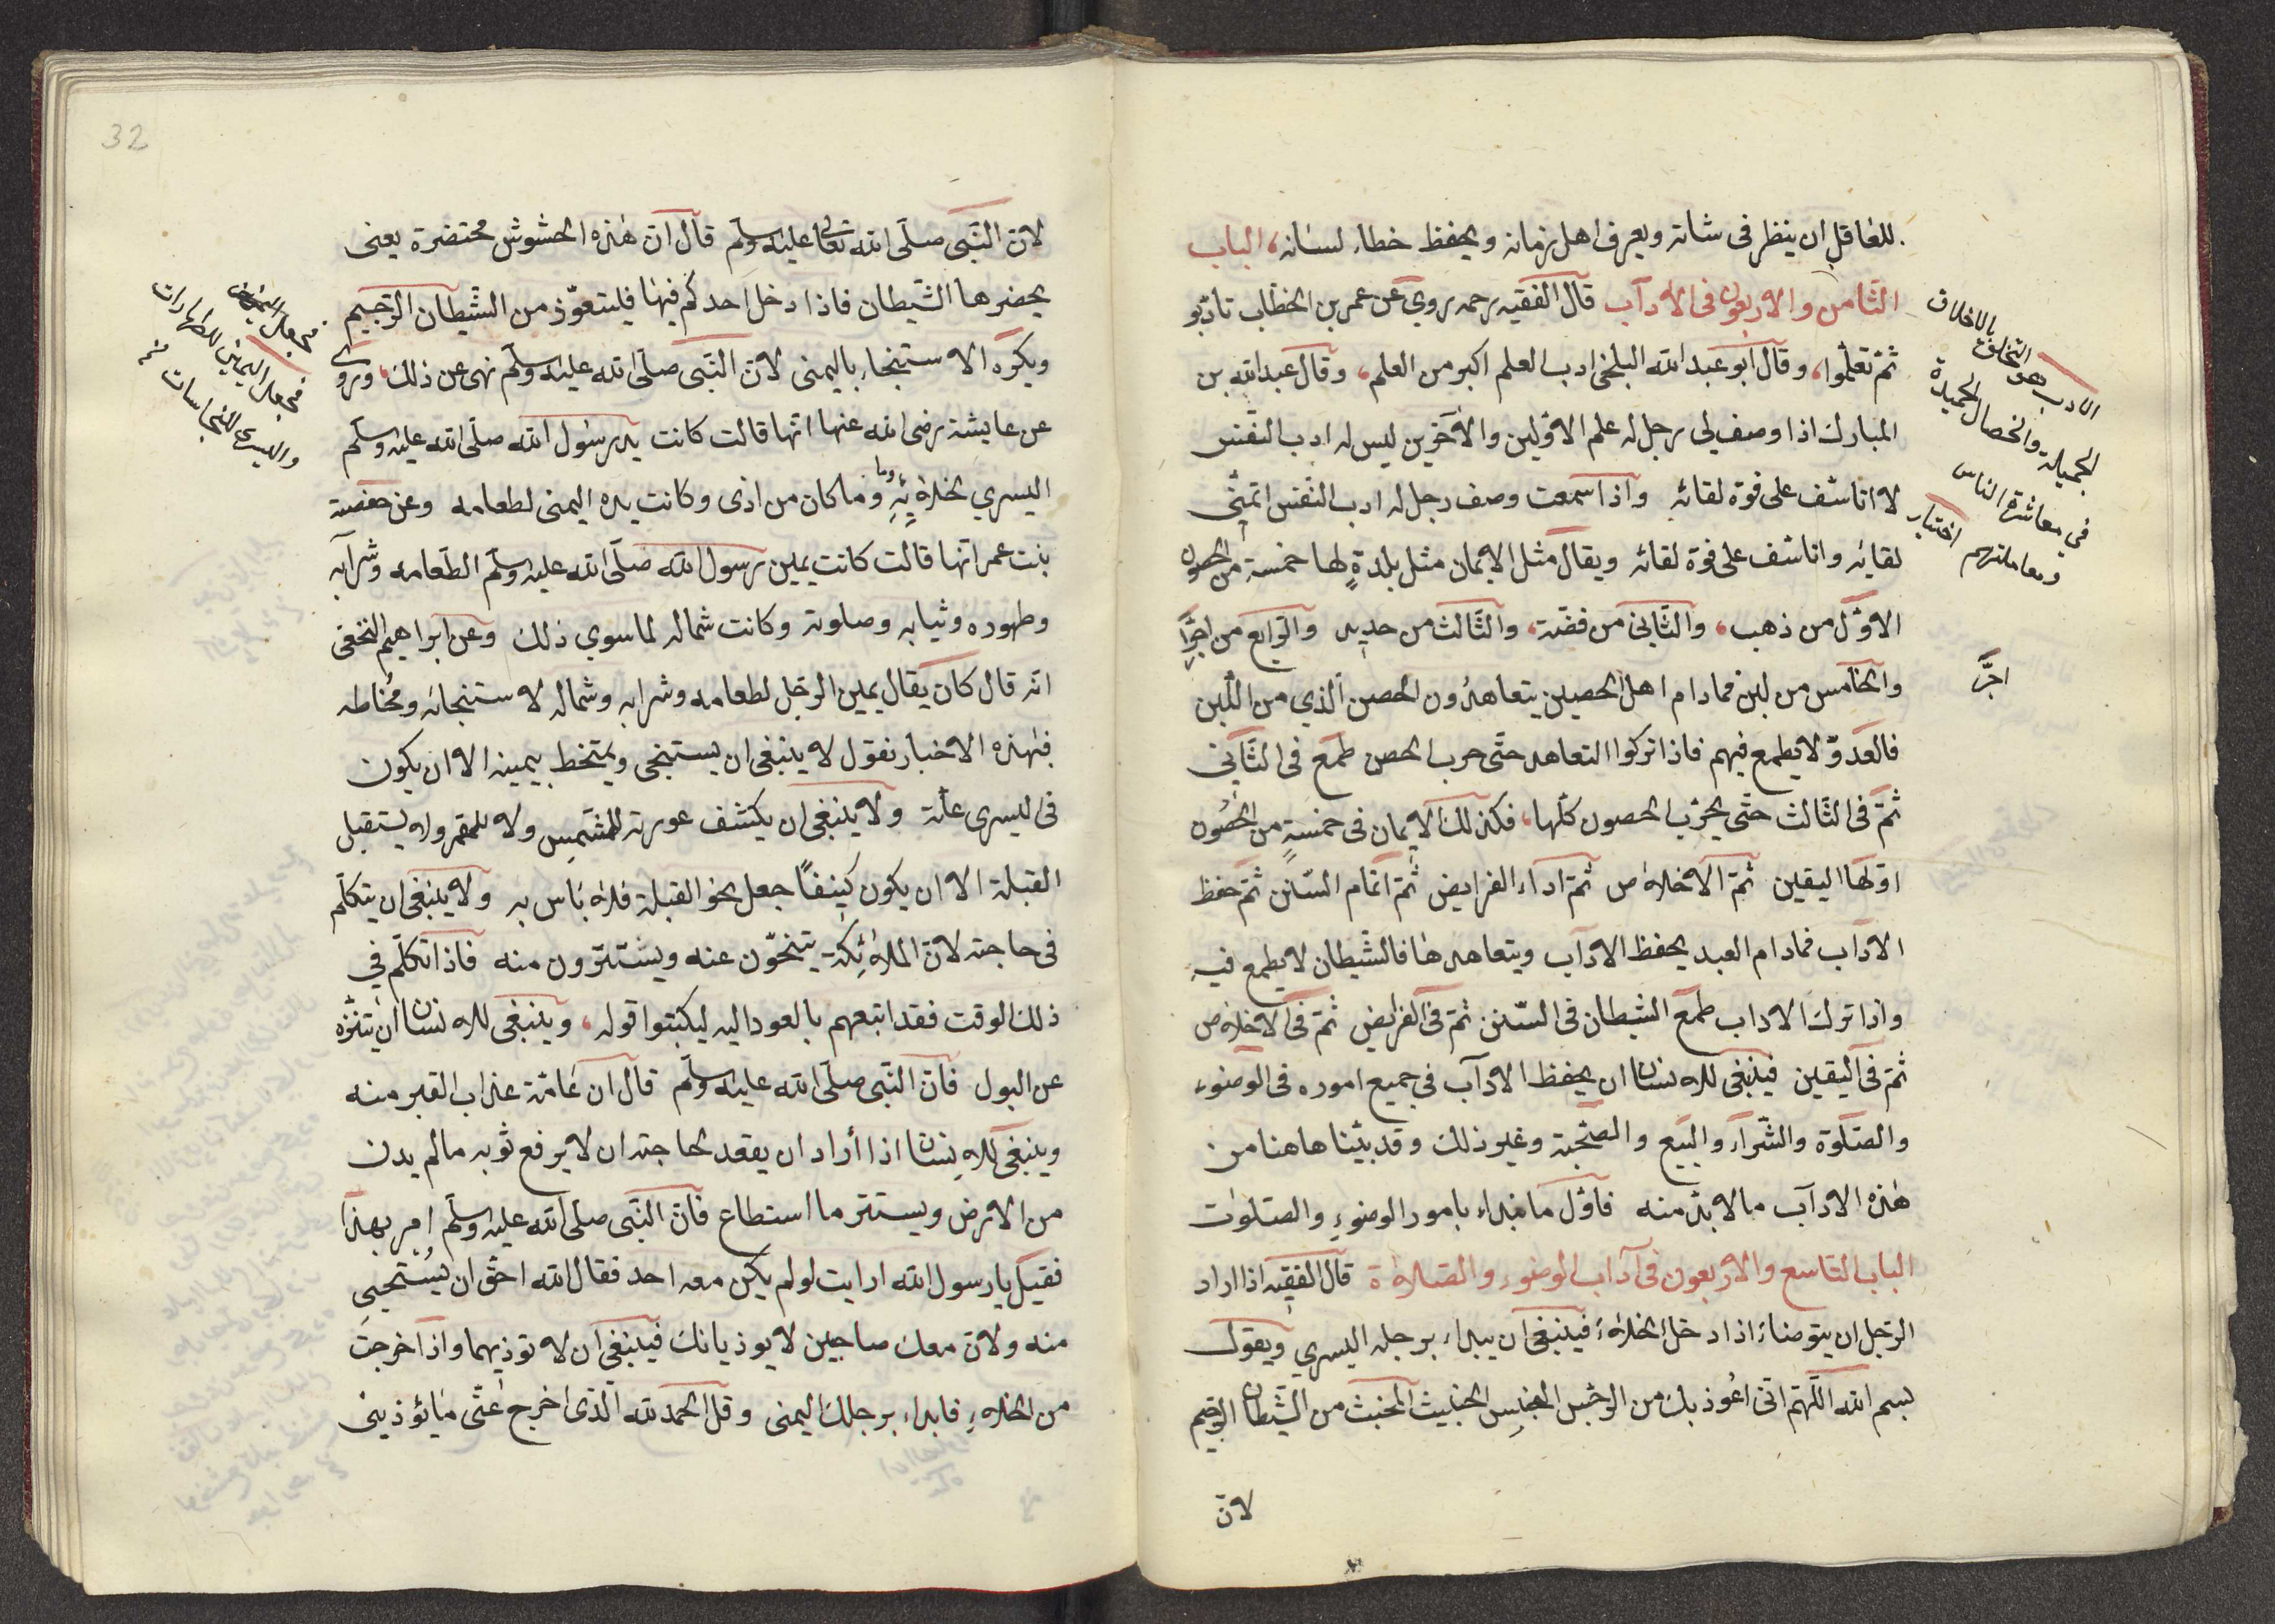 للعاقل ان ينظر فى شانه ويعرف اهل زمانه ويحفظ خطاء لسانه، الباب
الثّامن والاربعون فى الادآب قال الفقيه رحمه روي عن عمر بن الخطّاب تادّبو
ثمّ تعلّموا، وقال ابو عبد الله البلخى ادب العلم اكبر من العلم، وقال عبد الله بن
المبارك اذا وصف لى رجل له علم الاوّلين والآخرين ليس له ادب النفس
لا اتاسّف على فوة لقائه واذا سمعت وصف رجل له ادب النّفس اتمنّى
لقايئه واتاسّف على فوة لقائه ويقال مثل الايمان مثل بلدةٍ لها خمسة من الحصون
الاوّل من ذهب، والثّانى من فضّة، والثّالث من حديد والرّابع من اجرٍّ
والخامس من لبن فمادام اهل الحصين يتعاهدُون الحصن الّذي من اللّبن
فالعدوّ لا يطمع فيهم فاذا تركوا التعاهد حتّى حرب الحصن طمع فى الثّانى
ثمّ فى الثّالث حتّى يخرّب الحصون كلّها، فكذلك الايمان فى خمسةٍ من الحصُون
اوّلها اليقين ثمّ الاخلاص ثمّ اداء الفرايض ثمّ اتمام السّنن ثمّ حفظ
الادآب فمادام العبد يحفظ الادآب ويتعاهدها فالشّيطان لا يطمع فيه
واذا ترك الاداب طمع الشيطان فى السّنن ثمّ فى الفرايض ثمّ فى الاخلاص
ثمّ فى اليقين فينبغى للانسان ان يحفظ الادآب فى جميع اموره فى الوضوء
والصّلوة والشّرآء والبيع والصّحبة وغير ذلك وقد بيّنا هاهنا من
هذه الادآب مالا بدّ منه فاوّل ما نبداء بامور الوضوءِ والصّلوٰت
الباب التاسع والاربعون فى آداب الوضوء والصّلاة قال الفقيه اذا اراد
الرّجل ان يتوضاء اذا دخل الخلاءَ فينبغى ان يبداء برجله اليسري ويقول
بسم الله اللّهمّ انّى اعُوذ بك من الرّجس النّجس الخبيث المخبث من الشّيطان الرّجيم
لانّ
الادب هو التخلق بالاخلاق
الجميلة والخصال الحميدة
فى معاشرة الناس
ومعاملتهم اختيار
اجرّ
32
لانّ النّبى صلّى الله تعالى عليه وسلّم قال انّ هذه الحشوش محتضرة يعنى
يحضرها الشّيطان فاذا دخل احدكم فيها فليتعوّذ من الشّيطان الرّجيم
ويكره الاستنجاء باليمنى لانّ النّبى صلّى الله عليه وسلّم نهى عن ذلك، وروى
عن عايشة رضى الله عنها انّها قالت كانت يد رسول الله صلّى الله عليه وسلّم
اليسري لخلائهِ وما كان من اذى وكانت يده اليمنى لطعامه وعن حفصة
بنت عمر انّها قالت كانت يمين رسول الله صلّى الله عليه وسلّم الطعامه وشرآبه
وطهوره وثيابه وصلوته وكانت شماله لما سوي ذلك وعن ابراهيم النخعى
انّه قال كان يقال يمين الرّجل لطعامه وشرابه وشماله لاستنجائه ومُخاطه
فبهذه الاخبار نقول لا ينبغى ان يستنجى ويمتخط بيمينه الا ان يكون
فى ليسرى علّة ولا ينبغى ان يكشف عورته للشمس ولا للقمر ولا يستقبل
القبلة الا ان يكون كنيفًا جعل نحو القبلة فلا بَاس به ولا ينبغى ان يتكلّم
فى حاجته لانّ الملائكة يتنحّون عنه ويستترون منه فاذا تكلّم في
ذلك الوقت فقد اتبعهم بالعود اليه ليكتبوا قوله، وينبغى للانسان ان يتنزّه
عن البول فانّ النّبى صلّى الله عليه وسلّم قال ان عَامّة عذاب القبر منه
وينبغى للانسان اذا أراد ان يقعد لحاجته ان لا يرفع ثوبه مالم يدن
من الارض ويستتر ما استطاع فانّ النّبى صلّى الله عليه وسلّم امر بهذا
فقيل يا رسول الله ارايت لولم يكن معه احد فقال الله احقّ ان يُستحيى
منه ولانّ معك صاحبين لا يوذيانك فينبغى ان لا توذيهما واذا خرجت
من الخلاءِ فابداء برجلك اليمنى وقل الحمد لله الّذى اخرج عنّى مَا يؤذينى
فجعل اليمين للطهارات
واليسرى للنجاسات